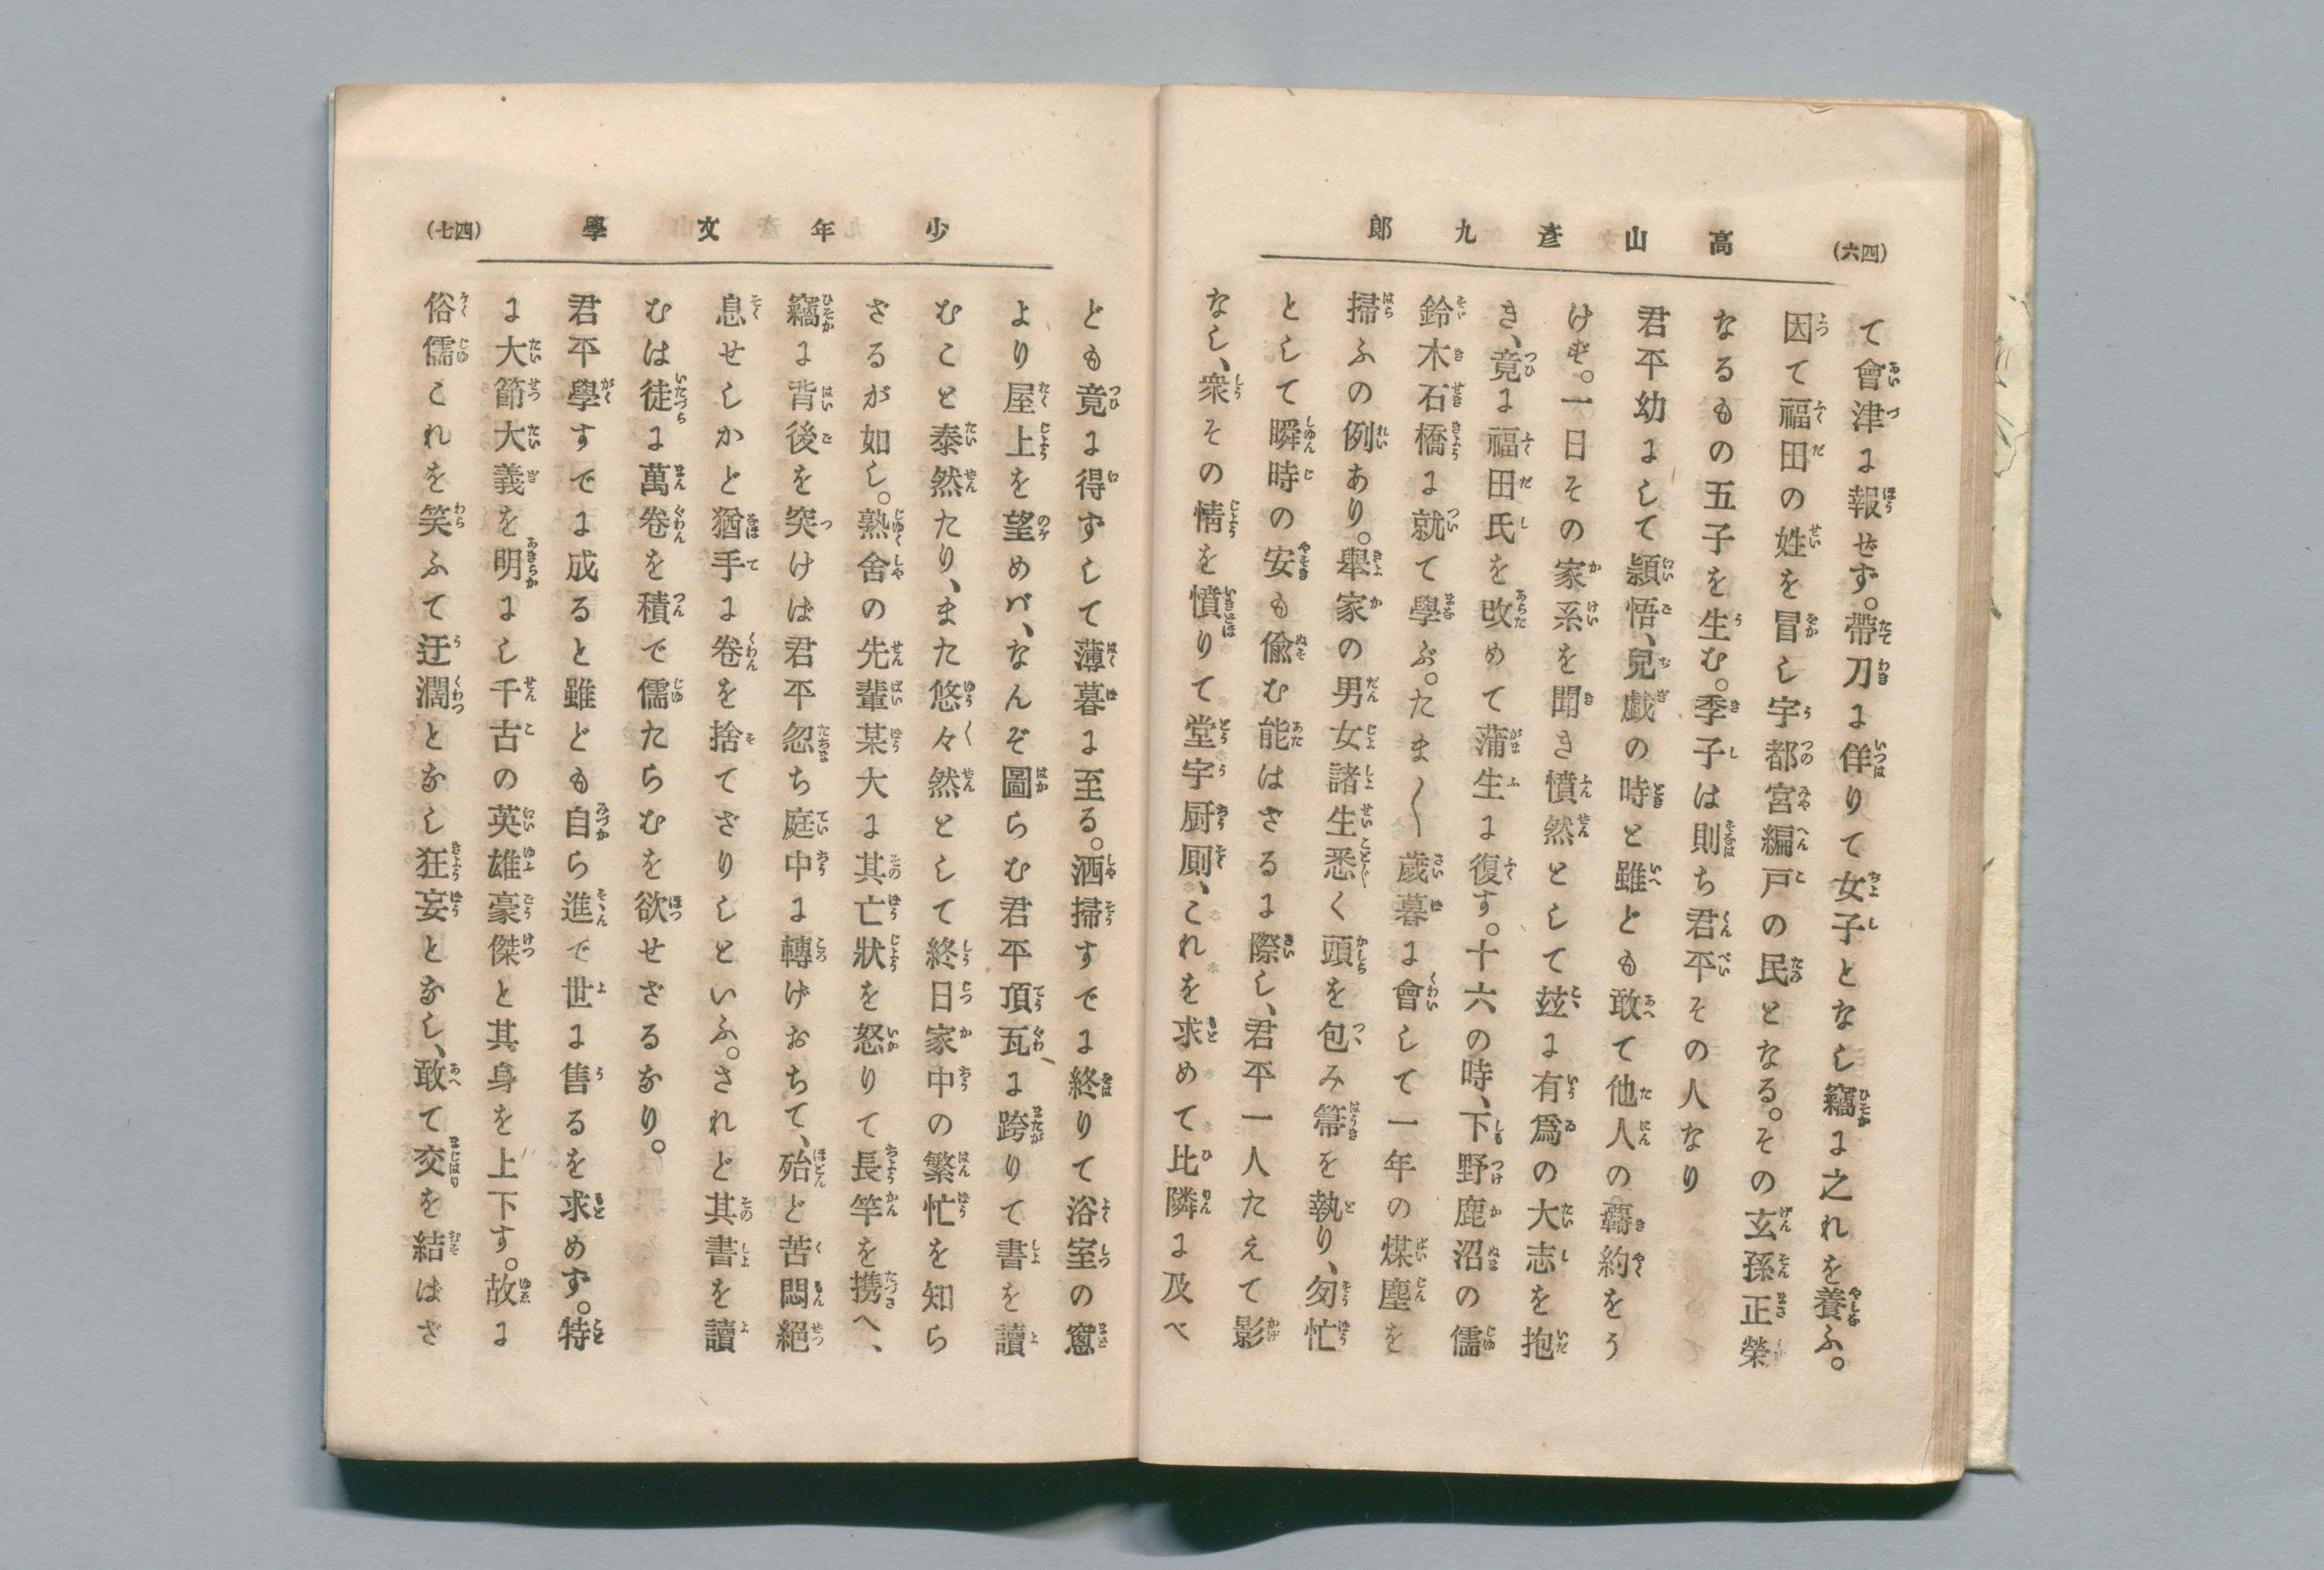 (四六)
高山彦九郎
て會津に報せず。帶刀に佯りて女子となし竊に之れを養ふ。
因て福田の姓を冒し宇都宮編戸の民となる。その玄孫正榮
なるもの五子を生む。季子は則ち君平その人なり
君平幼にして頴悟、兒戯の時と雖とも敢て他人の羇約をう
けず。一日その家系を聞き憤然として玆に有爲の大志を抱
き、竟に福田氏を改めて蒲生に復す。十六の時、下野鹿沼の儒
鈴木石橋に就て學ぶ。たま〱歳暮に會して一年の煤塵を
掃ふの例あり。擧家の男女諸生悉く頭を包み箒を執り、匆忙
として瞬時の安も偸む能はさるに際し、君平一人たえて影
なし、衆その情を憤りて堂宇厨厠、これを求めて比隣に及べ
少年文學
(四七)
ども竟に得ずして薄暮に至る。洒掃すでに終りて浴室の窻
より屋上を望めバ、なんぞ圖らむ君平頂瓦に跨りて書を讀
むこと泰然たり、また悠々然として終日家中の繁忙を知ら
さるが如し。熟舍の先輩某大に其亡狀を怒りて長竿を携へ、
竊に背後を突けば君平忽ち庭中に轉げおちて、殆ど苦悶絕
息せしかと猶手に卷を捨てざりしといふ。されど其書を讀
むは徒に萬卷を積で儒たらむを欲せざるなり。
君平學すでに成ると雖ども自ら進で世に售るを求めず。特
に大節大義を明にし千古の英雄豪傑と其身を上下す。故に
俗儒これを笑ふて迂濶となし狂妄となし、敢て交を結ばざ